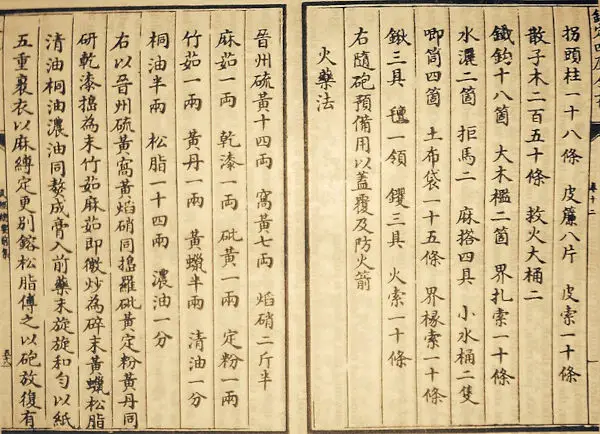 欽定四庫全書
卷十二
拐頭柱一十八條 皮簾八片 皮索一十條
散子木二百五十條 救火大桶二
鐵鈎十八箇 大木檻二箇 界扎索一十條
水灑二箇 拒馬二 麻搭四具 小水桶二隻
唧筒四箇 土布袋一十五條 界椽索一十條
鍬三具 氊一領 钁三具 火索一十條
右隨砲預備用以蓋覆及防火箭
火藥法
晉州硫黃十四兩 窩黃七兩 焰硝二斤半
麻茹一兩 乾漆一兩 砒黃一兩 定粉一兩
竹茹一兩 黃丹一兩 黃蠟半兩 清油一分
桐油半兩 松脂一十四兩 濃油一分
右以晉州硫黃窩黃焰硝同搗羅砒黃定粉黃丹同
研乾漆搗為末竹茹麻茹即微炒為碎末黃蠟松脂
清油桐油濃油同熬成膏入前藥末旋旋和勻以紙
五重裹衣以麻縛定更別鎔松脂傅之以砲放復有
武經總要前集